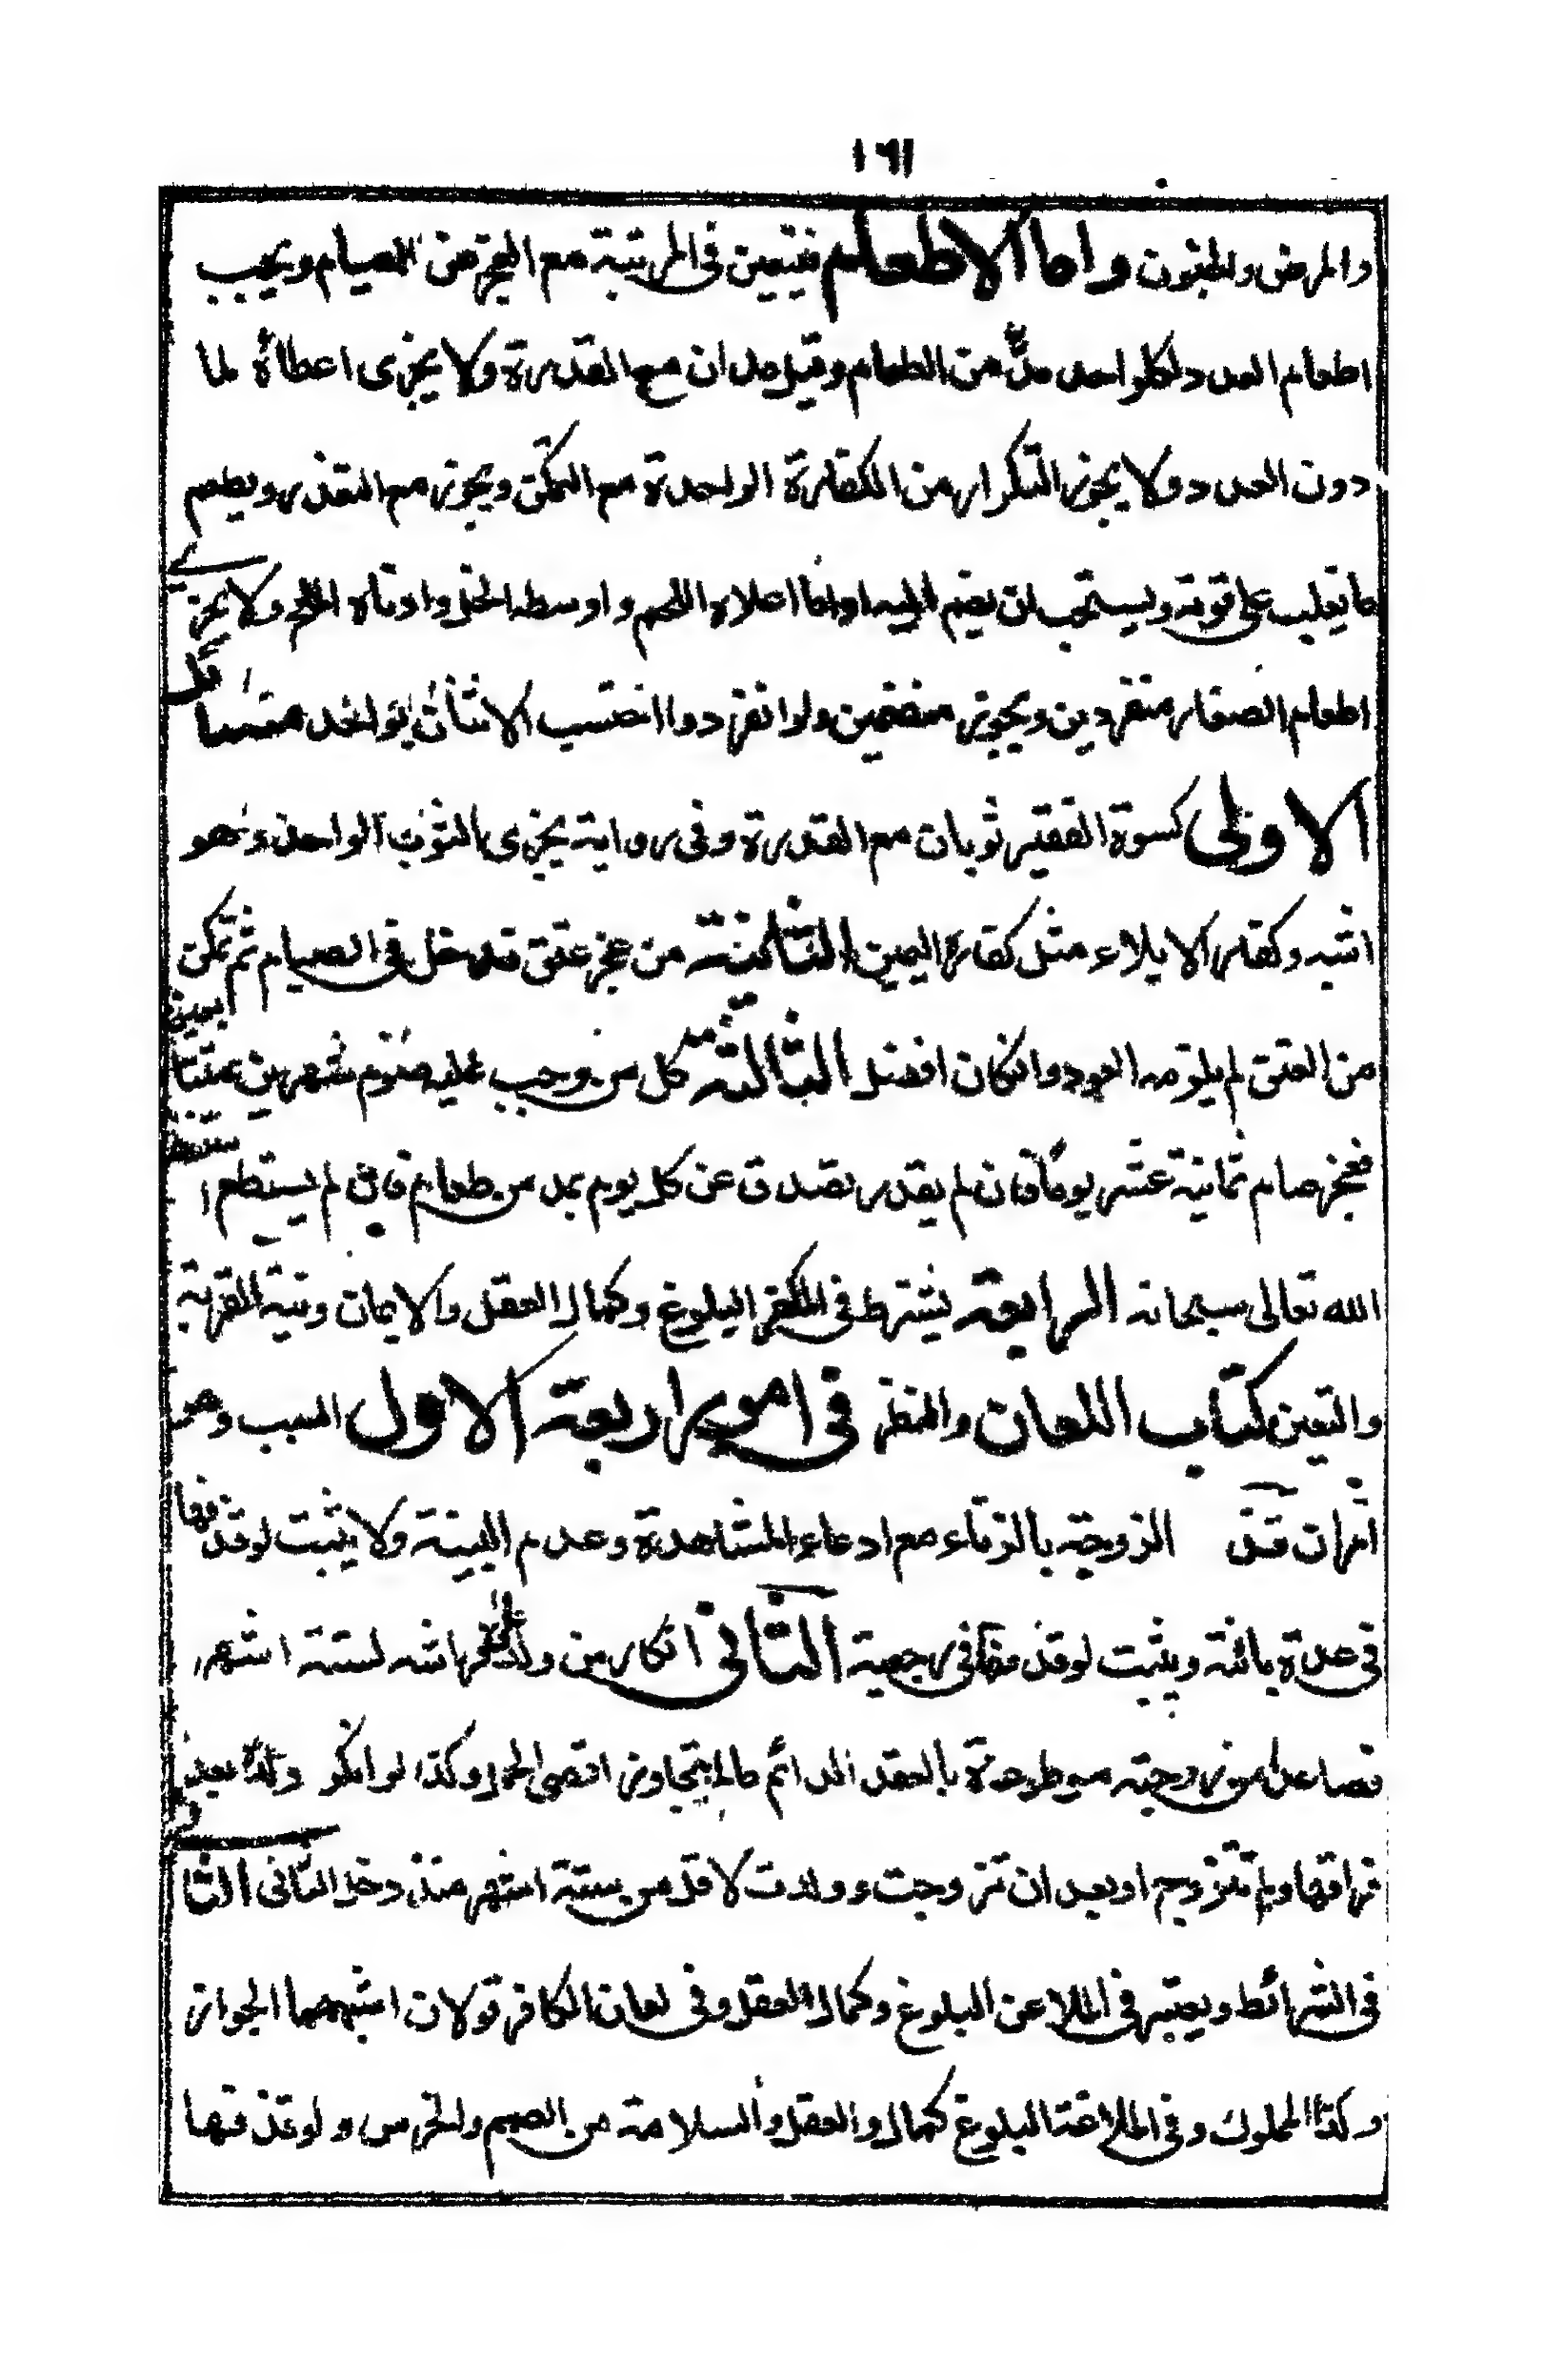 ١٦١
والمرض والجنون واما الاطعام فيتعين فى المرتبة مع العجز من الصيام ويجب
اطعام العدد لكلواحد مدّ من الطعام وقيل مدان مع القدرة ولا يجزى اعطاؤه لما
دون العدد ولا يجوز التكرار من الكفارة الواحدة مع التمكن ويجوز مع التعذر ويطعم
ما يغلب على قوته ويستحب ان يضم اليه اداما اعلاه اللحم واوسطه الخل وادناه الملح ولا يجزى
اطعام الصغار منفردين ويجوز منضمين ولو انفردوا احتسب الاثنان بواحد مسائل
الاولى كسوة الفقير ثوبان مع القدرة وفى رواية يجزى الثوب الواحد وهو
اشبه وكفارة الايلاء مثل كفارة اليمين الثانية من عجز عتق فدخل فى الصيام ثم تمكن
من العتق لم يلزمه العود وان كان افضل الثالثة كل من وجب عليه صوم شهرين متتابعين
فعجز صام ثمانية عشر يوما فان لم يقدر تصدق عن كل يوم بمد من طعام فان لم يستطع استغفر
الله تعالى سبحانه الرابعة يشترط فى المكفر البلوغ وكمال العقل والايمان ونية القربة
والتعين كتاب اللعان والنظر فى امور اربعة الاول السبب وهو
امران قذف الزوجة بالزناء مع ادعاء المشاهدة وعدم البينة ولا يثبت لو قذفها
فى عدة بائنة ويثبت لو قذفها فى رجعية الثانى انكار من ولد على فراشه لستة اشهر
فصاعدا من زوجته موطوءة بالعقد الدائم ما لم يتجاوز اقصى الحمل وكذا لو انكر ولدا بعد
فراقها ولم تتزوج او بعد ان تزوجت وولدت لاقل من ستة اشهر منذ دخل الثانى الثانى
فى الشرائط ويعتبر فى الملاعن البلوغ وكمال العقل وفى لعان الكافر قولان اشبههما الجواز
وكذا المملوك وفى الملاعنة البلوغ كمال والعقل والسلامة من الصمم والخرس ولو قذفها